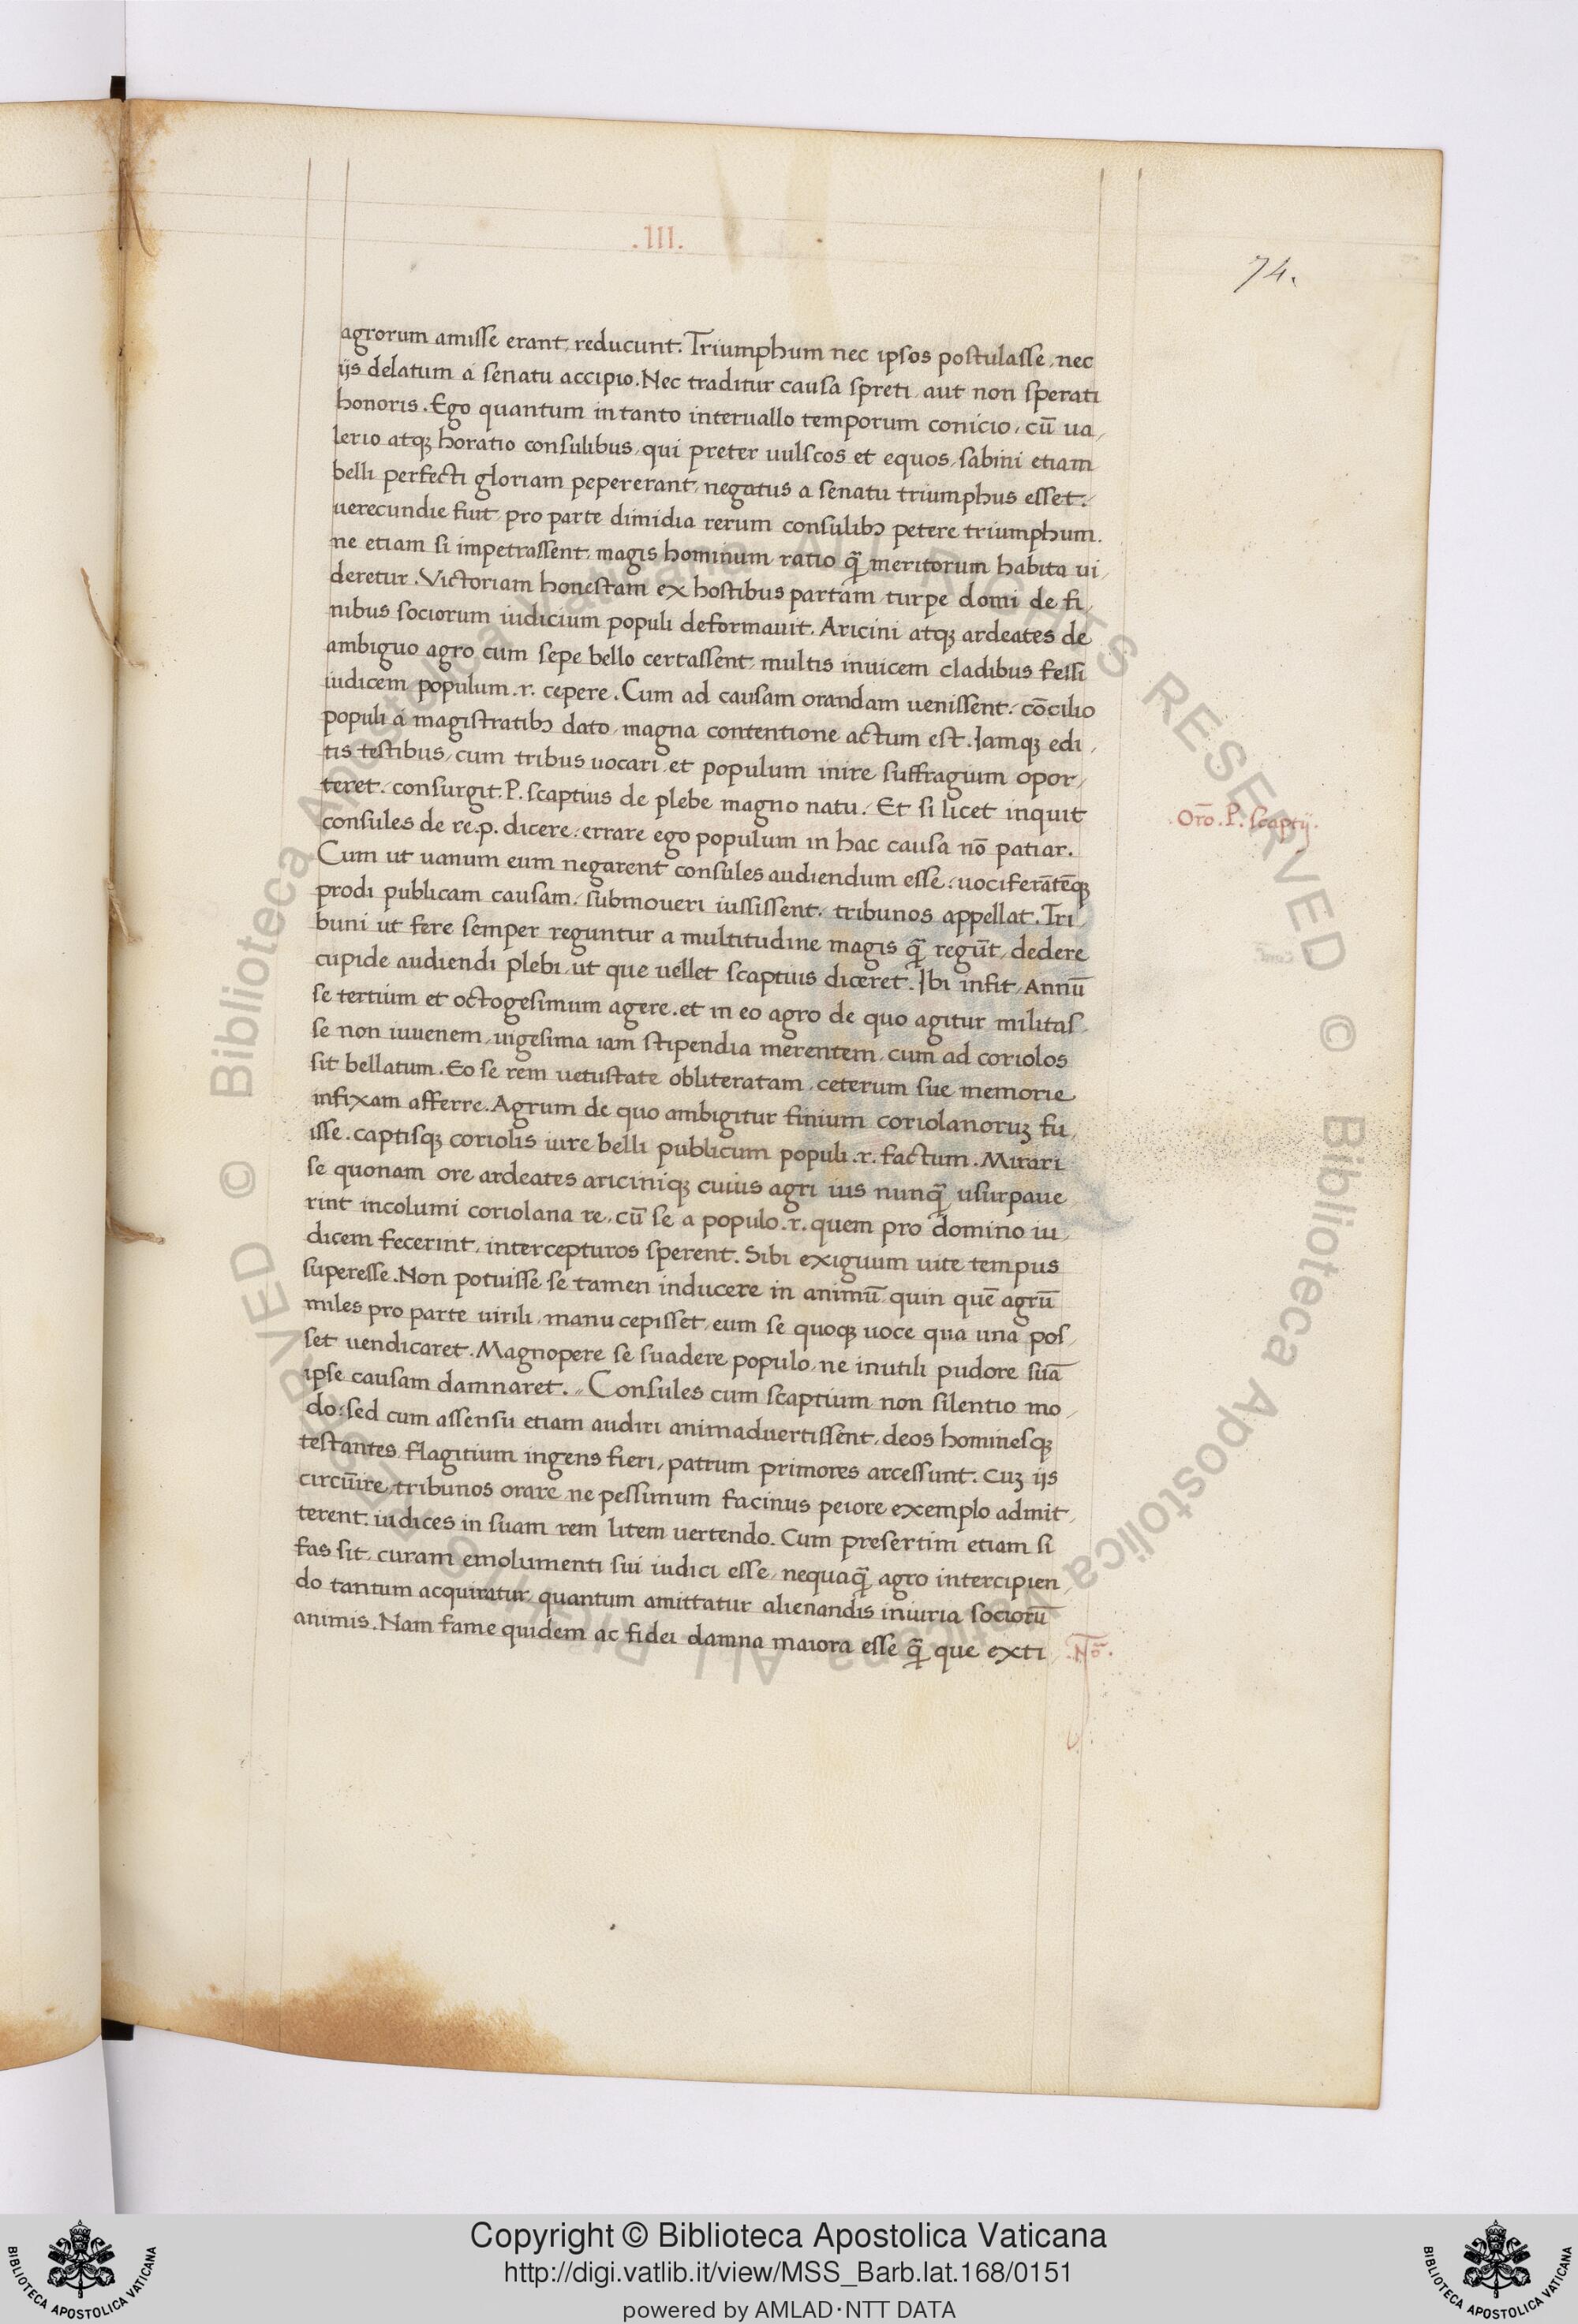 .III.
74.
agrorum amisse erant, reducunt. Triumphum nec ipsos postulasse, nec
ijs delatum a senatu accipio. Nec traditur causa spreti aut non sperati
honoris. Ego quantum in tanto interuallo temporum conicio, cū ua,
lerio atqꝫ horatio consulibus, qui preter uulscos et equos, sabini etiam
belli perfecti gloriam pepererant, negatus a senatu triumphus esset.
uerecundie fuit pro parte dimidia rerum consulibꝫ petere triumphum.
ne etiam si impetrassent, magis hominum ratio q̃ meritorum habita ui,
deretur. Victoriam honestam ex hostibus partam turpe domi de fi,
nibus sociorum iudicium populi deformauit. Aricini atqꝫ ardeates de
ambiguo agro cum sepe bello certassent, multis inuicem cladibus fessi
iudicem populum .r. cepere. Cum ad causam orandam uenissent, cōcilio
populi a magistratibꝫ dato, magna contentione actum est. Iamqꝫ edi,
tis testibus, cum tribus uocari et populum inire suffragium opor,
teret, consurgit .P. scaptius de plebe magno natu. Et si licet inquit
consules de re.p. dicere: errare ego populum in hac causa nō patiar.
.Orō. P. scaptij.
Cum ut uanum eum negarent consules audiendum esse: uociferātēqꝫ
prodi publicam causam, submoueri iussissent, tribunos appellat. Tri,
buni ut fere semper reguntur a multitudine magis q̃ regūt, dedere
cupide audiendi plebi, ut que uellet scaptius diceret. Ibi infit, Annū
se tertium et octogesimum agere. et in eo agro de quo agitur militas,
se non iuuenem, uigesima iam stipendia merentem, cum ad coriolos
sit bellatum. Eo se rem uetustate obliteratam, ceterum sue memorie
infixam afferre. Agrum de quo ambigitur finium coriolanoruꝫ fu,
isse. captisqꝫ coriolis iure belli publicum populi .r. factum. Mirari
se quonam ore ardeates aricinicqꝫ cuius agri ius nunq̃ usurpaue
rint incolumi coriolana re, cū se a populo .r. quem pro domino iu,
dicem fecerint, intercepturos sperent. Sibi exiguum uite tempus
superesse. Non potuisse se tamen inducere in animū quin quē agrū
miles pro parte uirili, manu cepisset, eum se quoqꝫ uoce qua una pos,
set uendicaret. Magnopere se suadere populo, ne inutili pudore suā
ipse causam damnaret. Consules cum scaptium non silentio mo,
do: sed cum assensu etiam audiri animaduertissent, deos hominesqꝫ
testantes flagitium ingens fieri, patrum primores arcessunt. Cuꝫ ijs
circūire, tribunos orare ne pessimum facinus peiore exemplo admit,
terent. iudices in suam rem litem uertendo. Cum presertim etiam si
fas sit, curam emolumenti sui iudici esse, nequaq̃ agro intercipien,
do tantum acquiratur, quantum amittatur alienandis iniuria sociorū
animis. Nam fame quidem ac fidei damna maiora esse q̃ que exti
.Nō.
Copyright © Biblioteca Apostolica Vaticana
http://digi.vatlib.it/view/MSS_Barb.lat.168/0151
powered by AMLAD·NTT DATA
BIBLIOTECA APOSTOLICA VATICANA
BIBLIOTECA APOSTOLICA VATICANA
© Biblioteca Apostolica Vaticana ALL RIGHTS RESERVED © Biblioteca Apostolica Vaticana ALL RIGHTS RESERVED